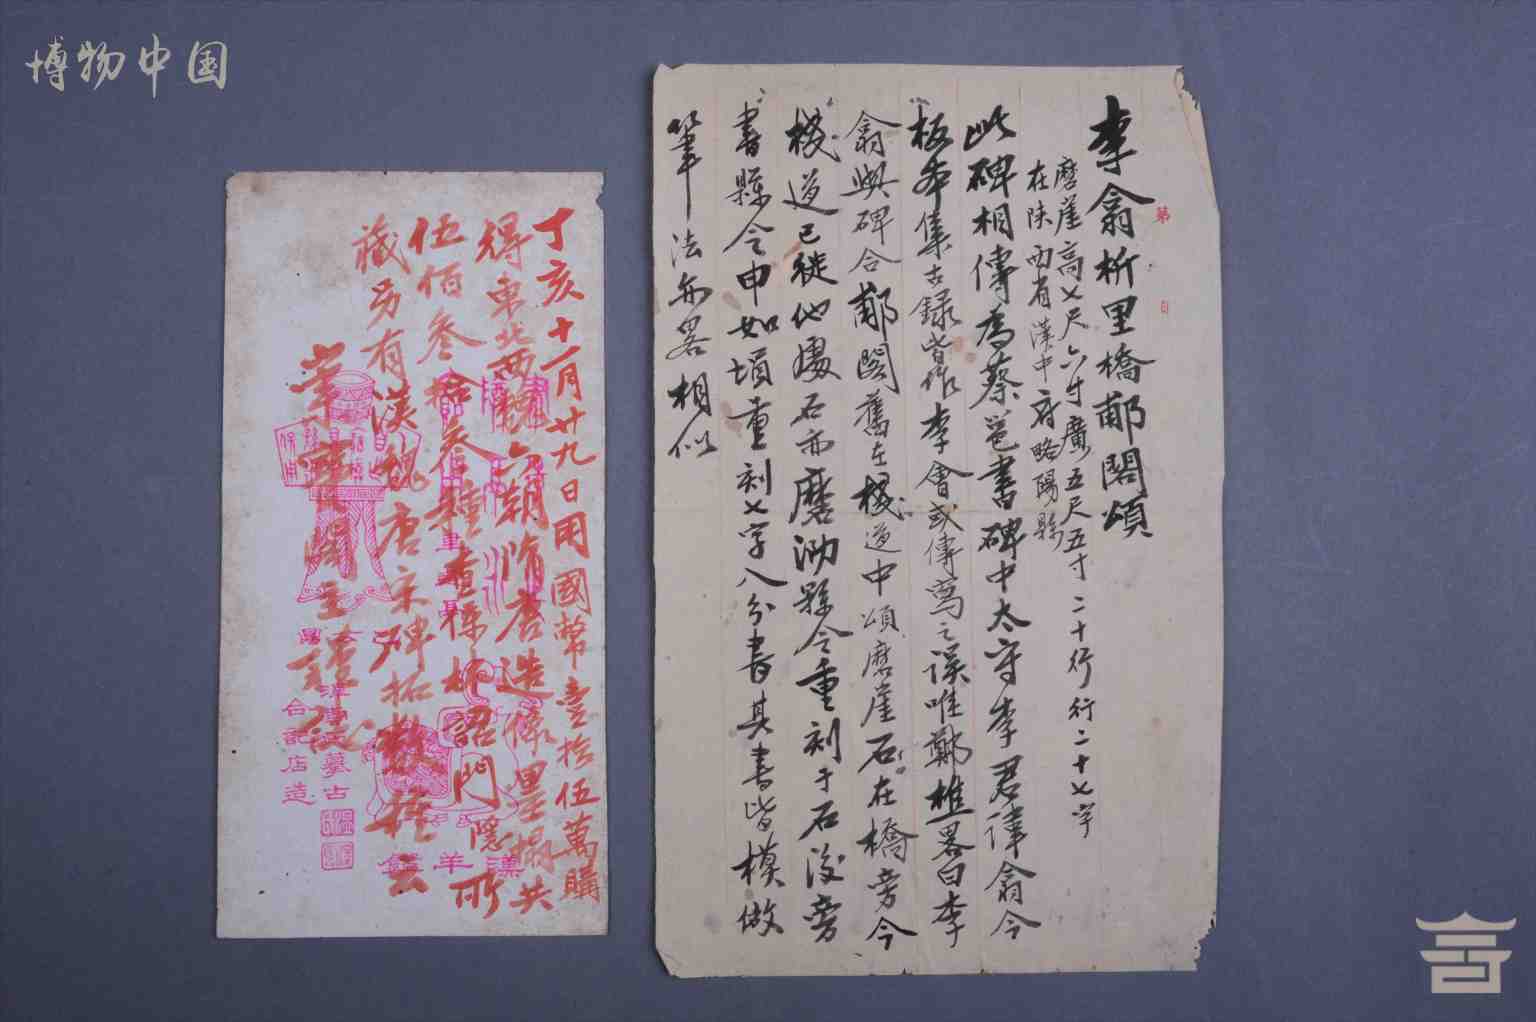 博物中国
李翕析里橋郙閣頌
磨崖高七尺六寸廣五尺五寸二十行行二十七字
在陕西省漢中府略陽縣
此碑相傳為蔡邕書碑中太守李君諱翕今
板本集古録皆作李會或傳寫之误唯鄭樵畧曰李
翕與碑合郙閣舊在棧道中頌磨崖石在橋旁今
棧道已徙他處石亦磨泐縣令重刻于石後旁
書縣令申如塤重刻七字八分書其書皆模做
筆法亦畧相似
第
日
丁亥十一月廿九日用國幣壹拾伍萬購
得東北西魏六朝隋唐造像墨搨共
伍佰叁拾叁種查縣
門隱所
藏另有漢魏唐宋碑拓数種云
主
摹古
合記店造
漢羊鐙